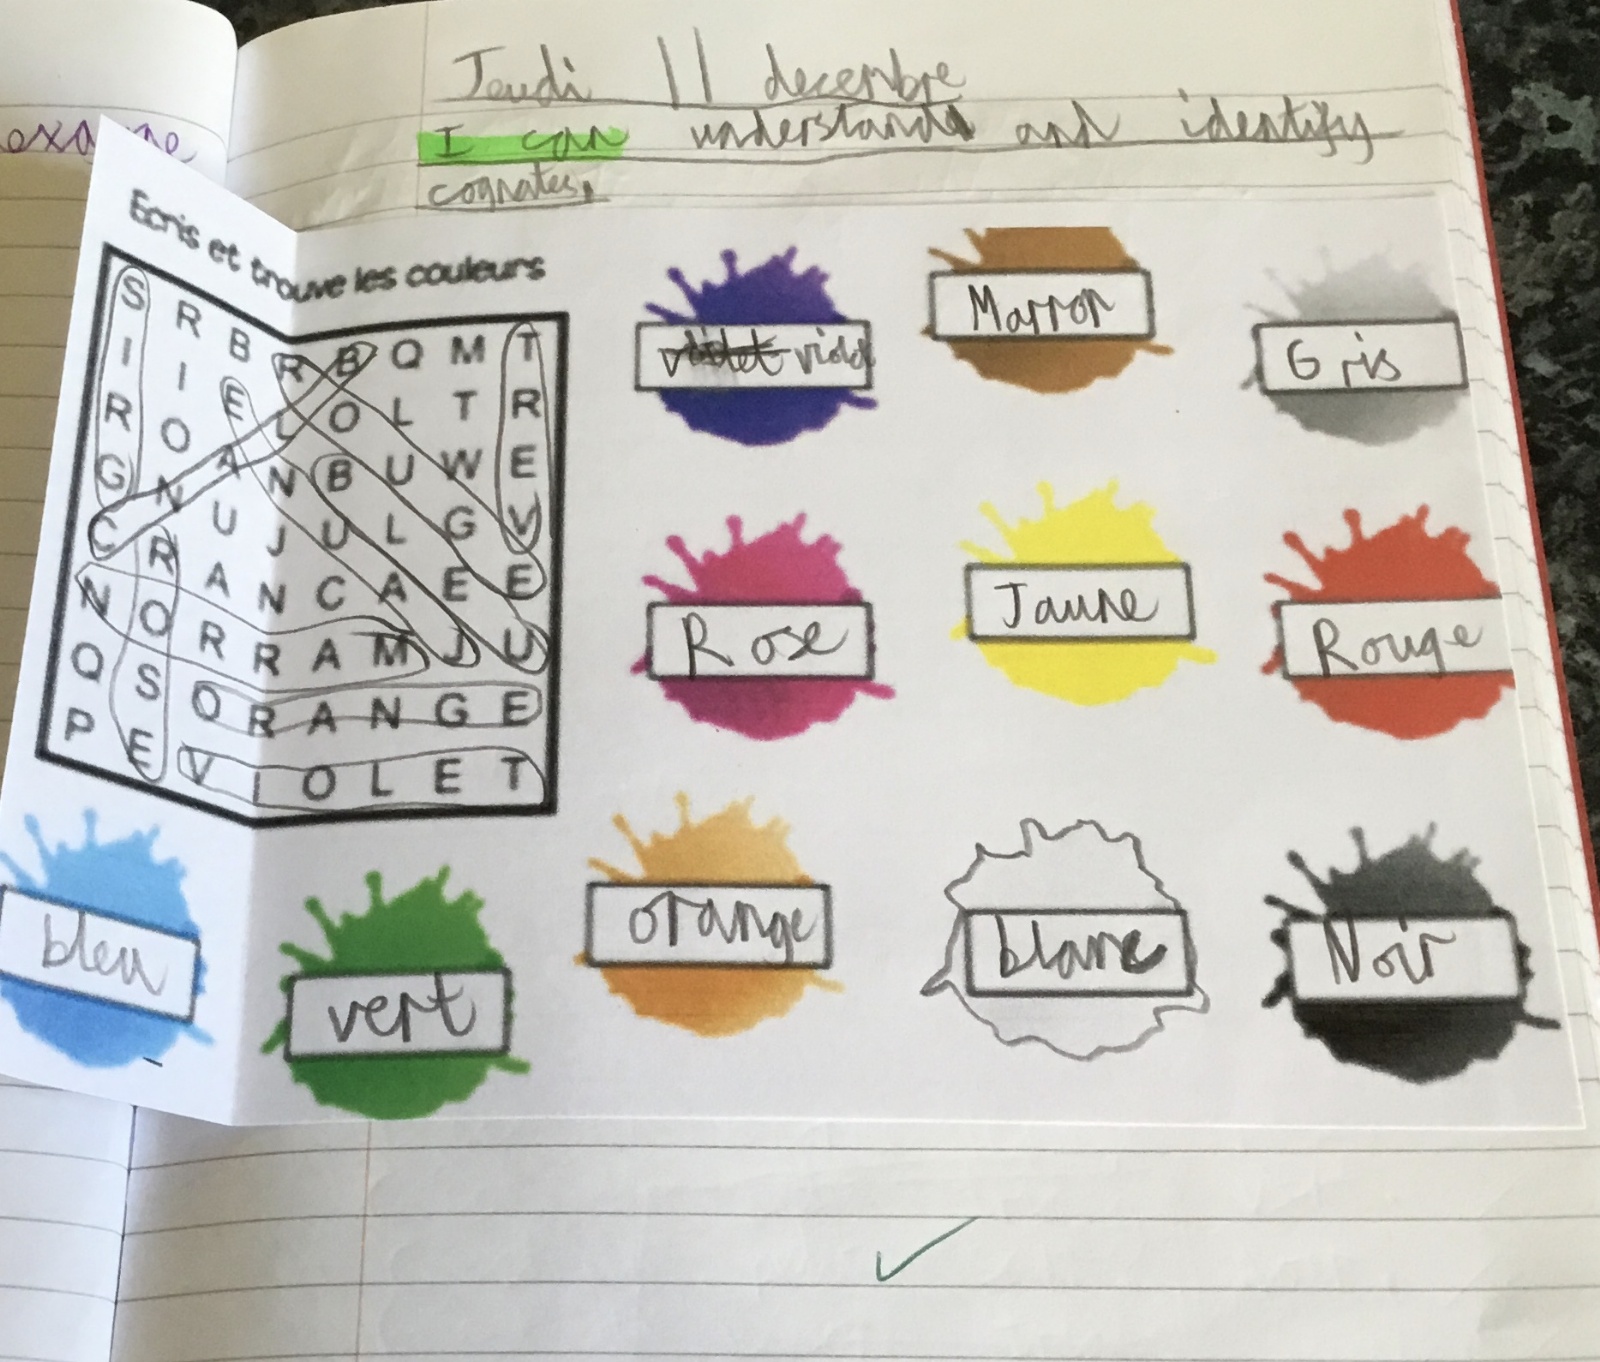 Jeudi 11 decembre
I can understand and identify
cognates.
Ecris et trouve les couleurs
S R B R B Q M T
I I E L O L T R
R O A N B U W E
G N U J U L G V
C R A N C A E E
N O R R A M J U
Q S O R A N G E
P E V I O L E T
violet
Marron
Gris
Rose
Jaune
Rouge
bleu
vert
orange
blanc
Noir